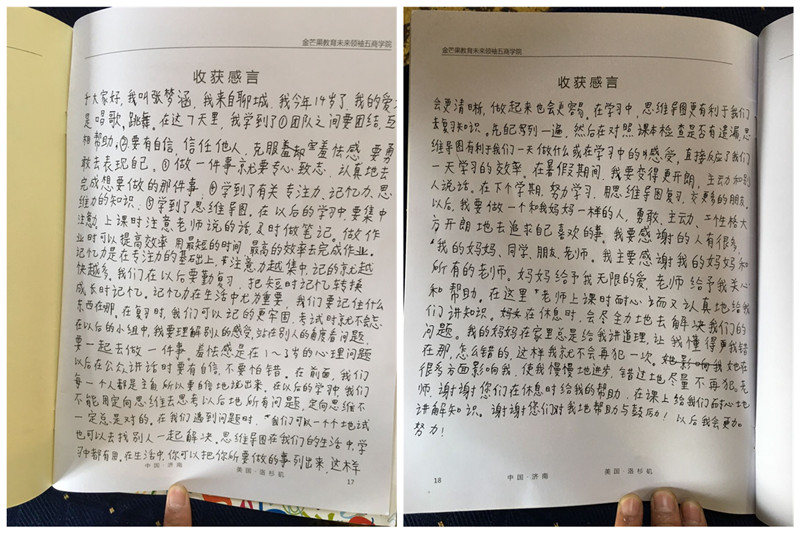 金芒果教育未来领袖五商学院
收获感言
大家好,我叫张梦涵,我来自聊城,我今年14岁了,我的爱
是唱歌,跳舞。在这7天里,我学到了①团队之间要团结,互
相帮助。②要有自信,信任他人,克服羞却害羞怯感,要勇
敢去表现自己。③做一件事就要专心致志,认真地去
完成想要做的那件事,④学到了有关专注力、记忆力、思
维力的知识,⑤学到了思维导图。在以后的学习中,要集中
注意力上课时注意老师说的话,及时做笔记。做作
业时可以提高效率,用最短的时间,最高的效率去完成作业。
记忆力是在专注力的基础上,注意力越集中,记的就越
快越多。我们在以后要勤复习,把短时记忆转换
成长时记忆。记忆力在生活中尤为重要,我们要记住什么
东西在哪,在复习时,我们可以记的更牢固,考试时就不能忘
在以后的小组中,我要理解别人的感受,站在别人的角度看问题,
要一起去做一件事。羞怯感是在1~3岁的心理问题
以后在公众讲话时要有自信,不要怕错。在前面,我们
每一个人都是主角,所以要自信地说出来。在以后的学习中,我们
不能用定向思维去思考以后地所有问题,定向思维不
一定总是对的。在我们遇到问题时,我们可以一个个地试
也可以去找别人一起解决。思维导图在我们的生活中,学
习中都有用。在生活中,你可以把你所要做的事列出来,这样
中国·济南 美国·洛杉矶 17
金芒果教育未来领袖五商学院
收获感言
会更清晰,做起来也会更容易。在学习中,思维导图更有利于我们
去复习知识。先把写到一遍,然后在对照课本检查是否有遗漏,思
维导图有利于我们一天做什么或在学习中的感受,直接反应了我们
一天学习的效率。在暑假期间,我要变得更开朗、主动和别
人说话。在下个学期,努力学习,用思维导图复习,交更多的朋友。
以后,我要做一个和我妈妈一样的人,勇敢、主动、性格大
方开朗地去追求自己喜欢的事。我要感谢的人有很多,
我的妈妈、同学、朋友、老师。我主要感谢我的妈妈和
所有的老师。妈妈给予我无限的爱,老师给予我关心
和帮助。在这里,老师上课时耐心而又认真地给我
们讲知识。在休息时,会尽全力地去解决我们的
问题。我的妈妈在家里总是给我讲道理,让我懂得我错
在那,怎么错的,这样我就不会再犯一次。她在
很多方面影响我,使我慢慢地进步,错过地尽量不再犯,老
师,谢谢您们在休息时给我的帮助,在课上给我们耐心地
讲解知识。谢谢您们对我地帮助与鼓励!以后我会更加
努力!
18 中国·济南 美国·洛杉矶